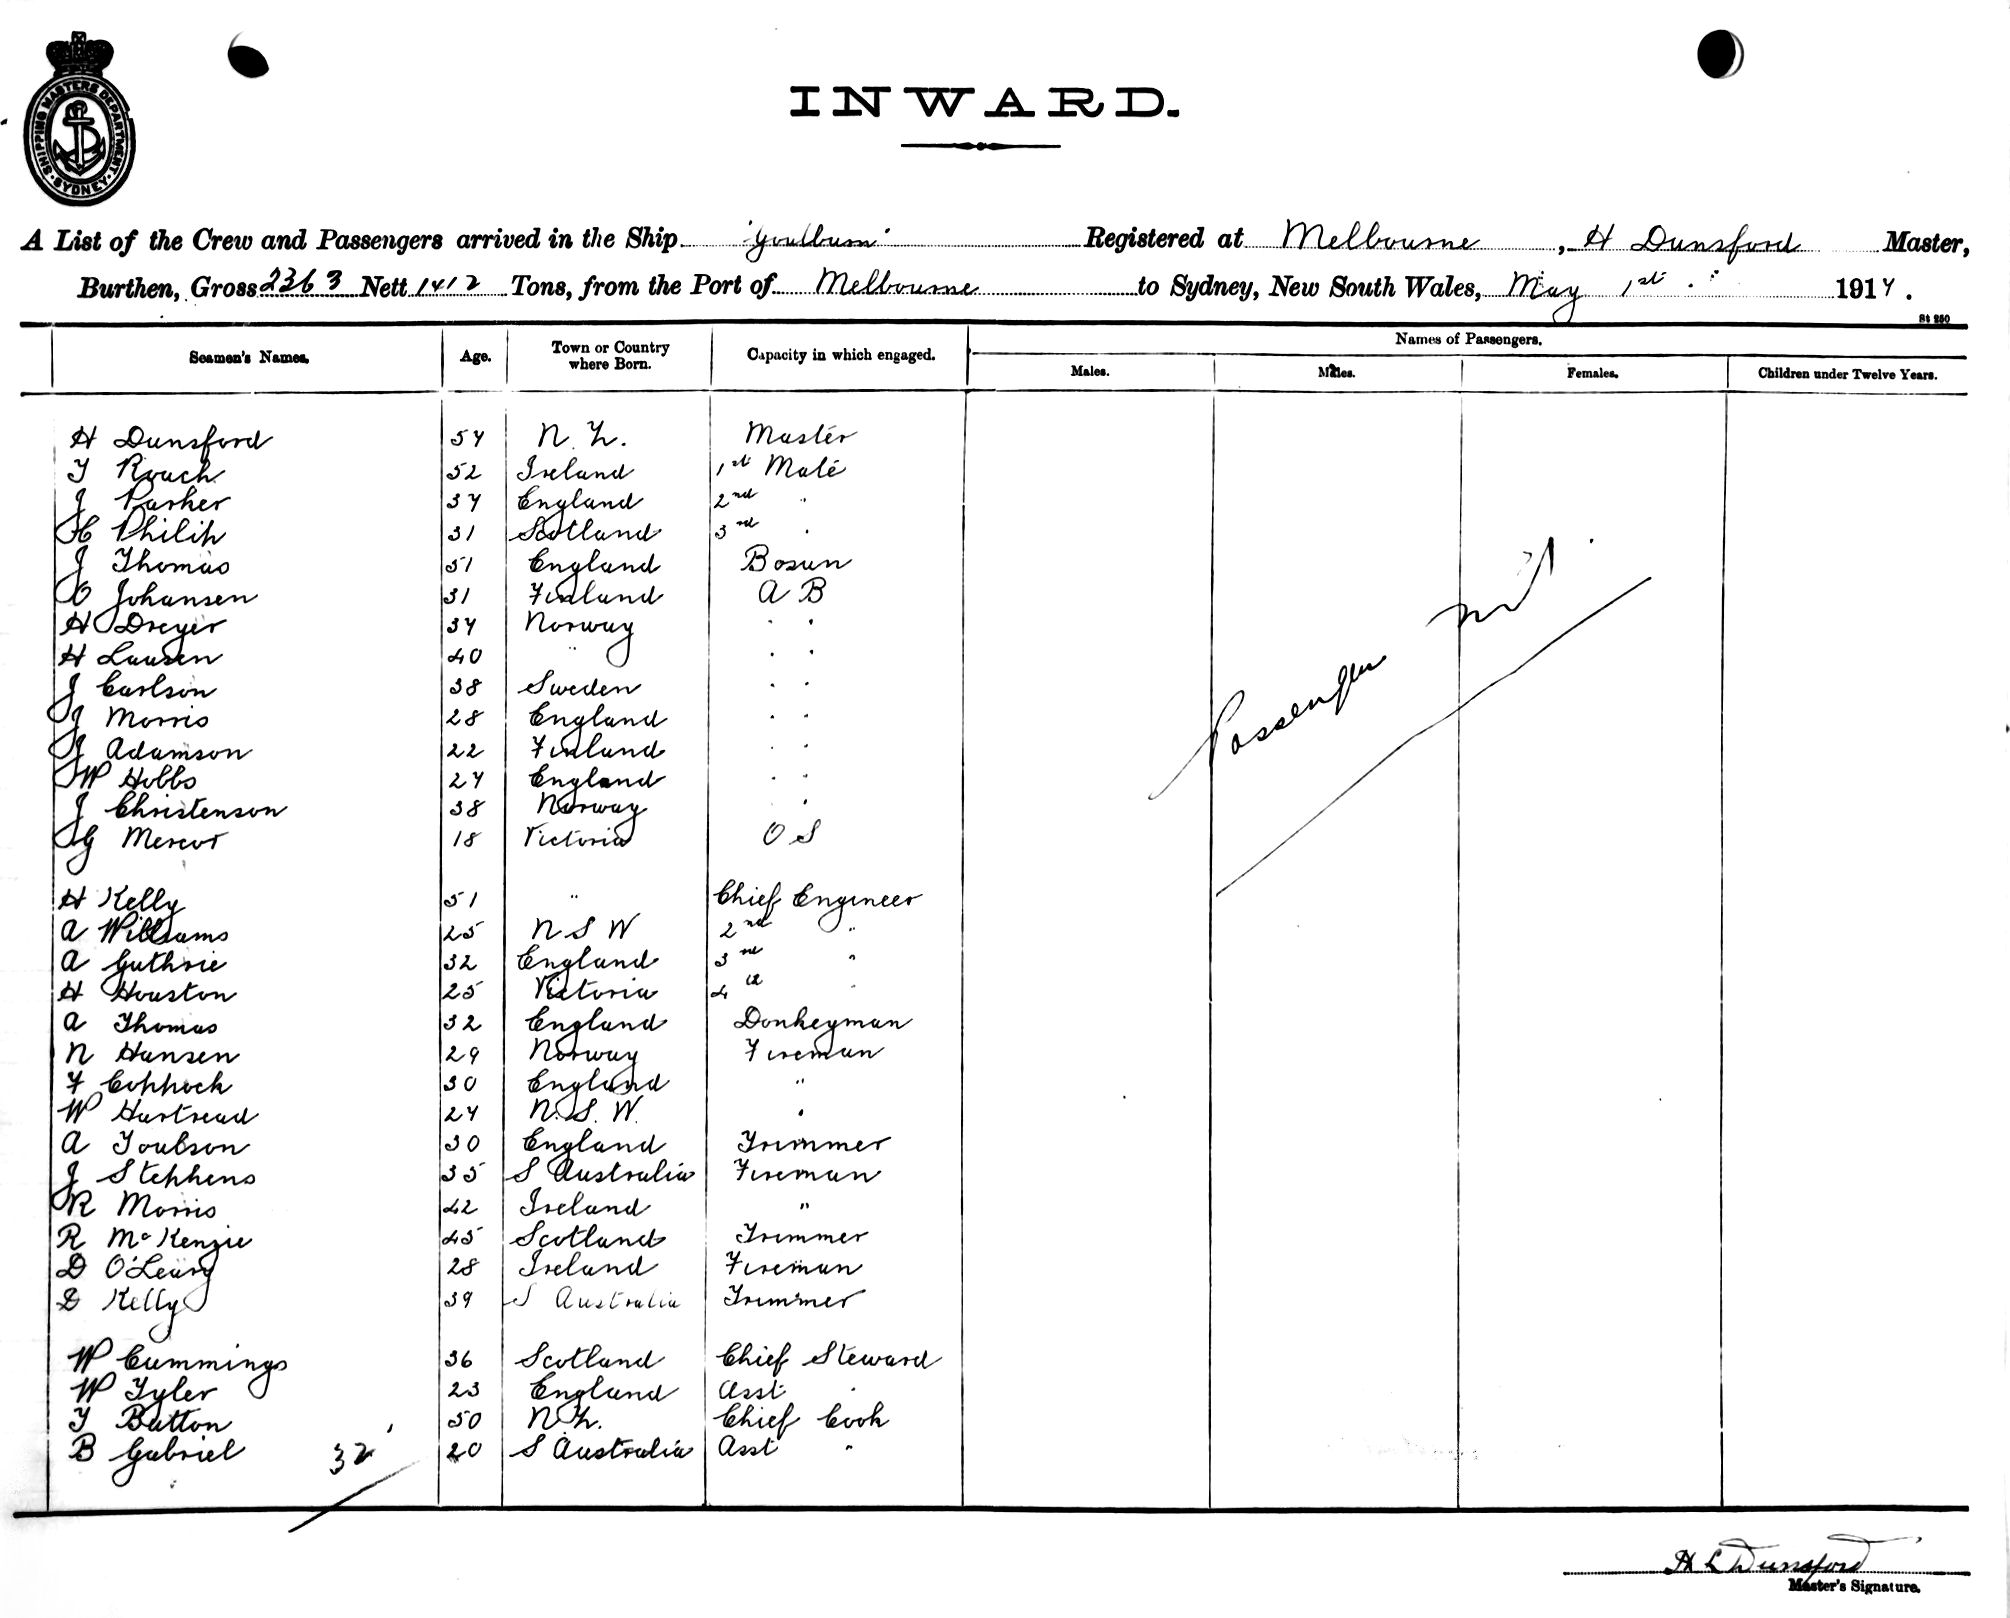 SHIPPING MASTERS DEPARTMENT. SYDNEY.
INWARD.
A List of the Crew and Passengers arrived in the Ship "Goulburn" Registered at Melbourne, H Dunsford Master,
Burthen, Gross 2363 Nett 1412 Tons, from the Port of Melbourne to Sydney, New South Wales, May 1st 1914.
St 250
Seamen's Names. Age. Town or Country where Born. Capacity in which engaged. Names of Passengers.
Males. Males. Females. Children under Twelve Years.
H Dunsford 54 N. Z. Master
T Roach 52 Ireland 1st Mate
J Parker 34 England 2nd "
H Philip 31 Scotland 3rd "
J Thomas 51 England Bosun
O Johansen 31 Finland A B
H Dreyer 34 Norway " "
H Lausen 40 " " "
J Carlson 38 Sweden " "
J Morris 28 England " "
J Adamson 22 Finland " "
W Hobbs 24 England " "
J Christenson 38 Norway "
G Mercor 18 Victoria O S
Passengers Nil.
H Kelly 51 " Chief Engineer
A Williams 25 N S W 2nd "
A Guthrie 32 England 3rd "
H Houston 25 Victoria 4th "
A Thomas 32 England Donkeyman
N Hansen 29 Norway Fireman
F Coppock 30 England "
W Hartread 24 N. S. W. "
A Toulson 30 England Trimmer
J Stephens 35 S Australia Fireman
R Morris 42 Ireland "
R McKenzie 45 Scotland Trimmer
D O'Leary 28 Ireland Fireman
D Kelly 39 S Australia Trimmer
W Cummings 36 Scotland Chief Steward
W Tyler 23 England Asst "
T Button 50 N Z. Chief Cook
B Gabriel 32 20 S Australia Asst "
H L Dunsford
Master's Signature.